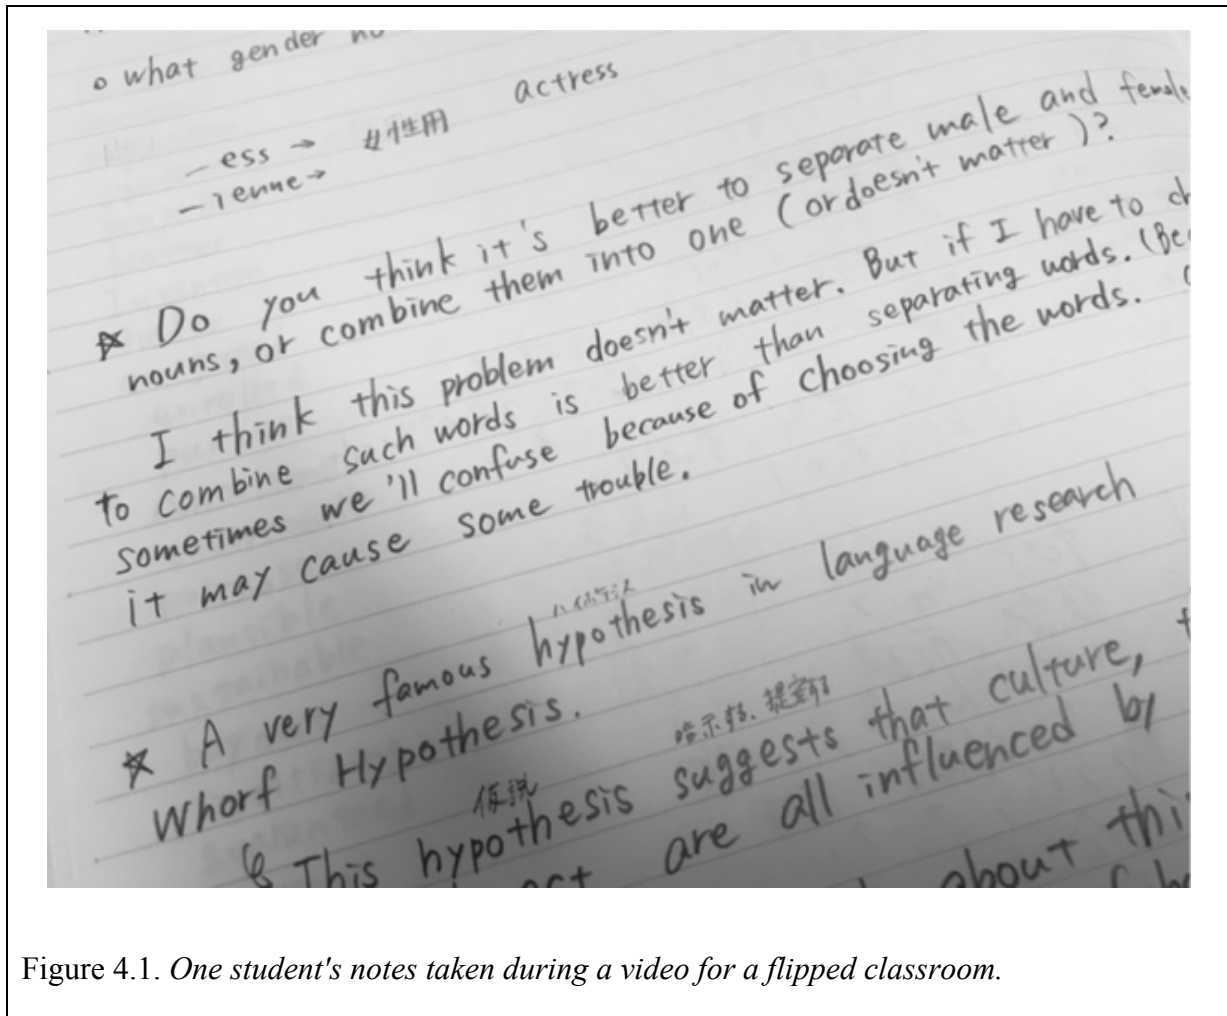 o what gender no
actress
– ess → 女性用
– ienne →
☆ Do you think it's better to separate male and female
nouns, or combine them into one (or doesn't matter)?
I think this problem doesn't matter. But if I have to ch
to combine such words is better than separating words. (Be
sometimes we'll confuse because of choosing the words.
it may cause some trouble.
☆ A very famous hypothesis in language research
Whorf Hypothesis.
暗示する、提案する
仮説
This hypothesis suggests that culture,
are all influenced by
about thi
Figure 4.1. One student's notes taken during a video for a flipped classroom.